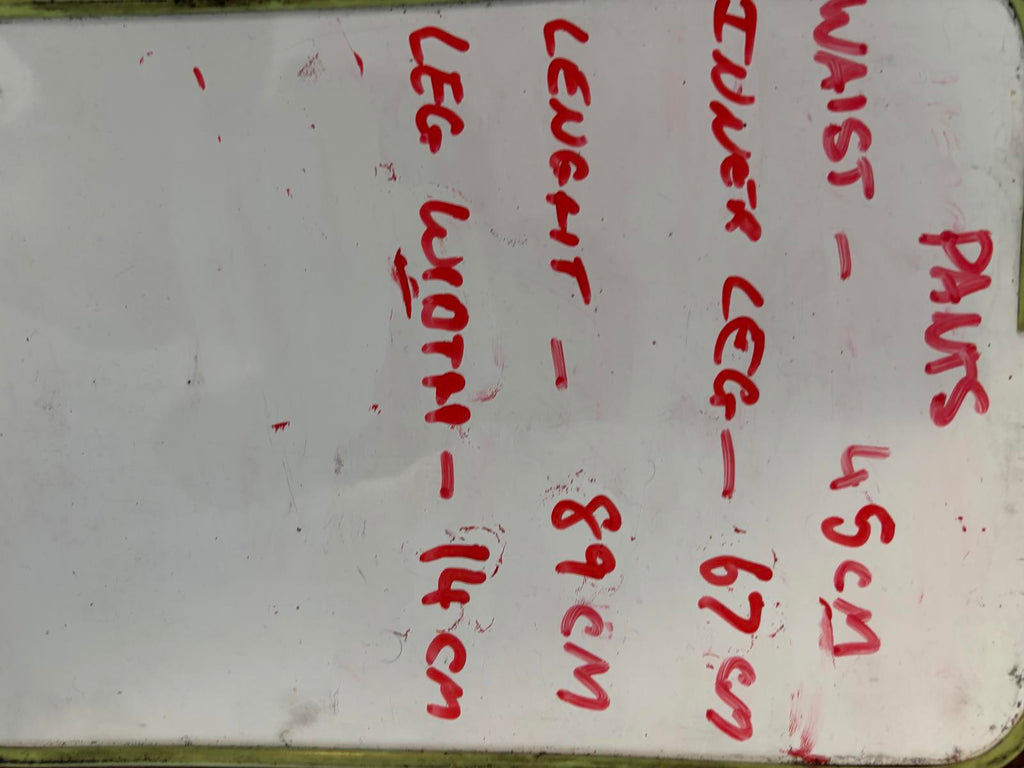 PANTS
WAIST - 45CM
INNER LEG - 67CM
LENGHT - 89CM
LEG WIDTH - 14CM